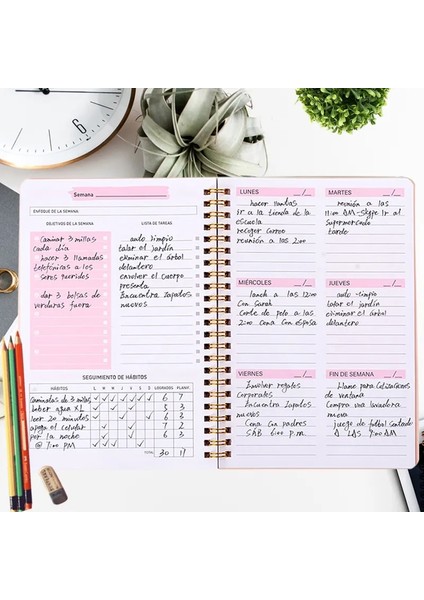 Semana
ENFOQUE DE LA SEMANA
OBJETIVOS DE LA SEMANA
Caminar 3 millas
cada dia
hacer 3 llamadas
telefónicas a los
seres queridos
dar 3 bolsas de
verduras fuera
LISTA DE TAREAS
auto limpio
talar el jardín
eliminar el árbol
delantero
envolver el cuerpo
presenta
Encuentra Zapatos
nuevos
SEGUIMIENTO DE HÁBITOS
HÁBITOS L M M J V S D LOGRADOS PLANIF.
caminatas de 3 millas 6 7
beber agua XL 5 3
leer 20 minutos 6 3
apaga el celular 7 2
por la noche 6 3
@ 7:00 PM
TOTAL 30 17
LUNES __/__
hacer
ir a la tienda de la
escuela
recoger correo
reunión a las 2:00
MARTES __/__
reunión a las
11:00 AM - skype Ir al
supermercado
tarde
MIÉRCOLES __/__
lunch a las 12:00
con sarah
Corte de pelo a las
2:00 Cena con esposa
JUEVES __/__
auto limpio
talar el jardín
eliminar el árbol
delantero
VIERNES __/__
Envolver regalos
corporates
Encuentra Zapatos
nuevos
Cena con padres
SAB 6:00 p.m.
FIN DE SEMANA __/__
Llame para Cotizaciones
de ventana
Compra una lavadora
nueva
juego de futbol
A LAS AM